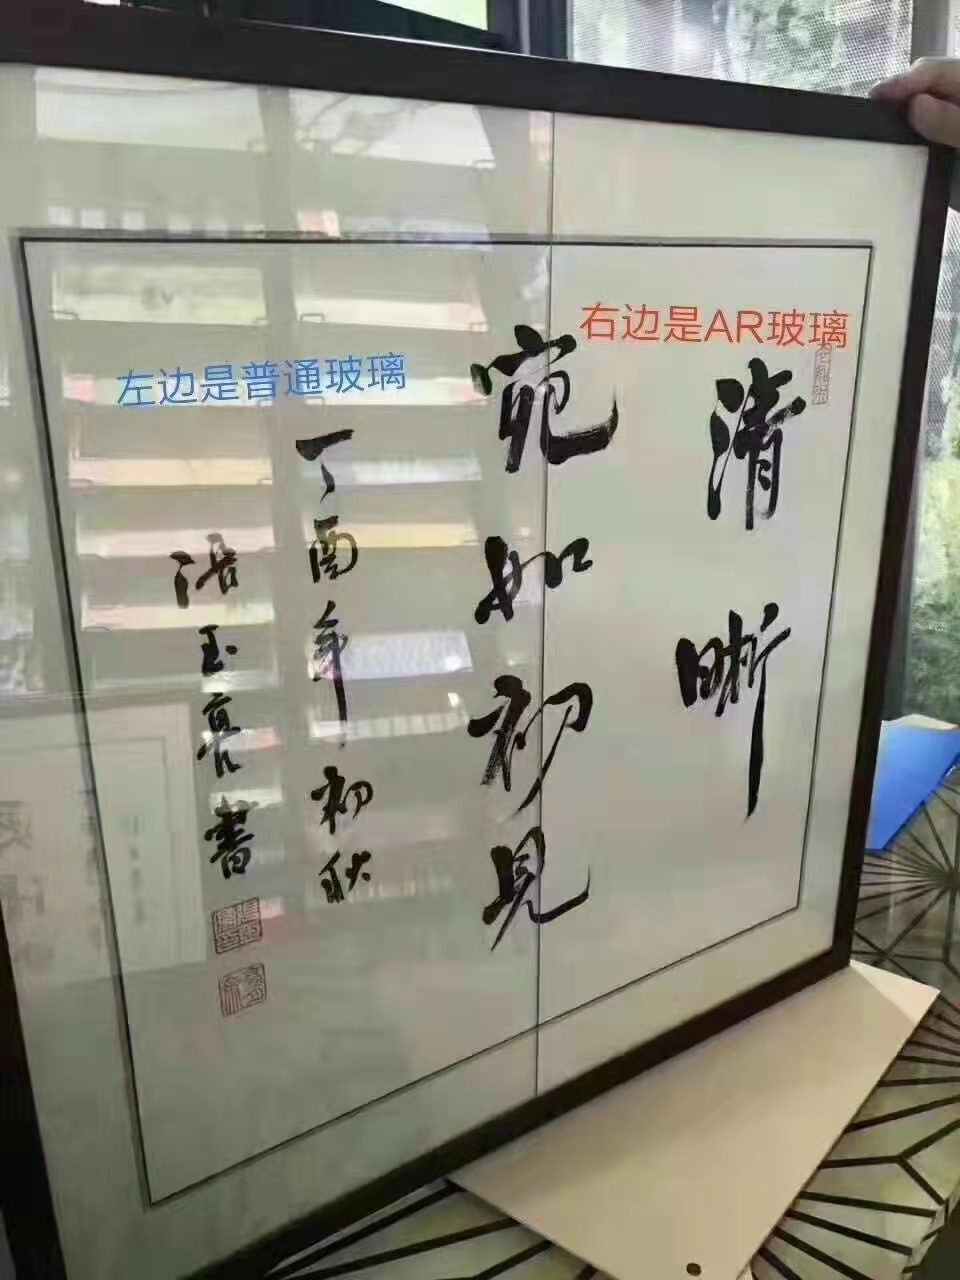 右边是AR玻璃
左边是普通玻璃
清晰
宛如初见
丁酉年初秋
玉亮書